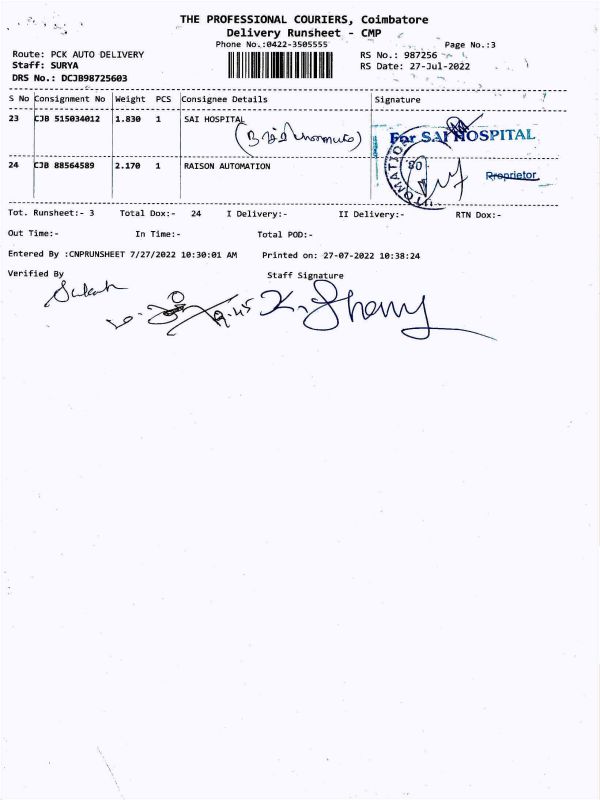 THE PROFESSIONAL COURIERS, Coimbatore
Delivery Runsheet - CMP
Phone No.:0422-3505555
Page No.:3
Route: PCK AUTO DELIVERY
RS No.: 987256
Staff: SURYA
RS Date: 27-Jul-2022
DRS No.: DCJB98725603
S No Consignment No Weight PCS Consignee Details Signature
23 CJB 515034012 1.830 1 SAI HOSPITAL
For SAI HOSPITAL
24 CJB 88564589 2.170 1 RAISON AUTOMATION
Proprietor
Tot. Runsheet:- 3 Total Dox:- 24 I Delivery:- II Delivery:- RTN Dox:-
Out Time:- In Time:- Total POD:-
Entered By :CNPRUNSHEET 7/27/2022 10:30:01 AM Printed on: 27-07-2022 10:38:24
Verified By Staff Signature